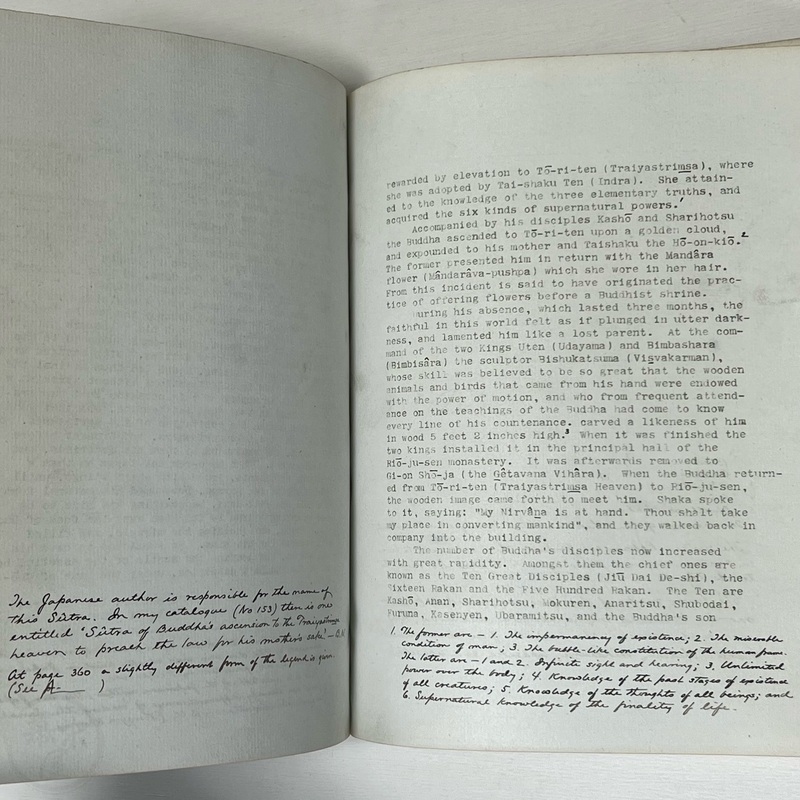 The Japanese author is responsible for the name of
this Sûtra. In my catalogue (No 153) there is one
entitled 'Sûtra of Buddha's ascension to the Trayastrimsa
heaven to preach the law for his mother's sake' — B.N.
At page 360 a slightly different form of the legend is given.
(See A )
rewarded by elevation to Tō-ri-ten (Traiyastrimsa), where
she was adopted by Tai-shaku Ten (Indra). She attain-
ed to the knowledge of the three elementary truths, and
acquired the six kinds of supernatural powers.¹
Accompanied by his disciples Kashō and Sharihotsu
the Buddha ascended to Tō-ri-ten upon a golden cloud,
and expounded to his mother and Taishaku the Hō-on-kiō.²
The former presented him in return with the Mandâra
flower (Mândarâva-pushpa) which she wore in her hair.
From this incident is said to have originated the prac-
tice of offering flowers before a Buddhist shrine.
During his absence, which lasted three months, the
faithful in this world felt as if plunged in utter dark-
ness, and lamented him like a lost parent. At the com-
mand of the two Kings Uten (Udayama) and Bimbashara
(Bimbisâra) the sculptor Bishukatsuma (Visvakarman),
whose skill was believed to be so great that the wooden
animals and birds that came from his hand were endowed
with the power of motion, and who from frequent attend-
ance on the teachings of the Buddha had come to know
every line of his countenance. carved a likeness of him
in wood 5 feet 2 inches high.³ When it was finished the
two kings installed it in the principal hall of the
Riō-ju-sen monastery. It was afterwards removed to
Gi-on Shō-ja (the Gêtavana Vihâra). When the Buddha return-
ed from Tō-ri-ten (Traiyastrimsa Heaven) to Riō-ju-sen,
the wooden image came forth to meet him. Shaka spoke
to it, saying: "My Nirvâna is at hand. Thou shalt take
my place in converting mankind", and they walked back in
company into the building.
The number of Buddha's disciples now increased
with great rapidity. Amongst them the chief ones are
known as the Ten Great Disciples (Jiū Dai De-shi), the
Sixteen Rakan and the Five Hundred Rakan. The Ten are
Kashō, Anan, Sharihotsu, Mokuren, Anaritsu, Shubodai,
Furuna, Kasenyen, Ubaramitsu, and the Buddha's son
1. The former are — 1. The impermanency of existence; 2. The miserable
condition of man; 3. The bubble-like constitution of the human frame.
The latter are — 1 and 2. Infinite sight and hearing; 3. Unlimited
power over the body; 4. Knowledge of the past stages of existence
of all creatures; 5. Knowledge of the thoughts of all beings; and
6. Supernatural knowledge of the finality of life.